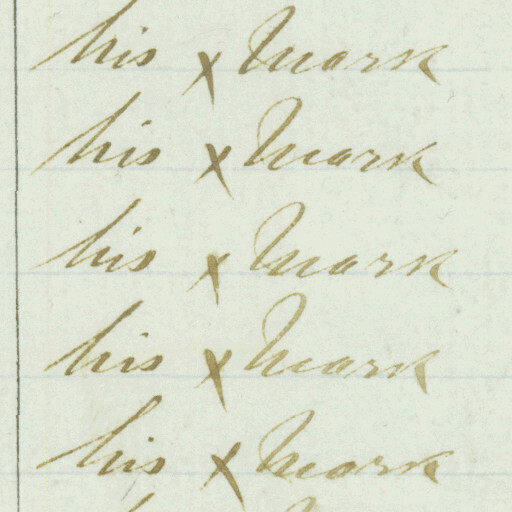 his x mark
his x mark
his x mark
his x mark
his x mark